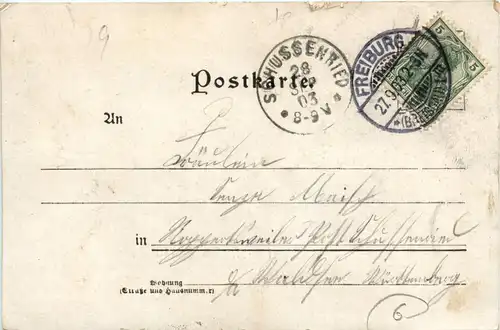 9
SCHUSSENRIED
28
SEP
03
8-9 V
FREIBURG
27.9.03.2-3N
(BREISGAU)
5 5
Postkarte.
An
Fräulein
Maisch
in Post Schussenried
Waldsee Württemberg
Wohnung
(Straße und Hausnummer)
6